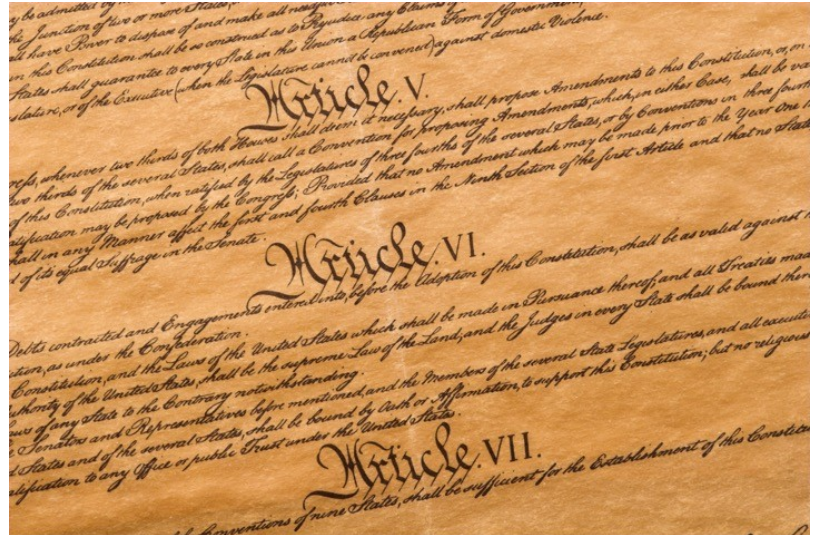 y be admitted by the
the Junction of two or more States,
all have Power to dispose of and make all needful
in this Constitution shall be so construed as to Prejudice any Claims of
States shall guarantee to every State in this Union a Republican Form of Government,
slature, or of the Executive (when the Legislature cannot be convened) against domestic Violence.
Article. V.
ress, whenever two thirds of both Houses shall deem it necessary, shall propose Amendments to this Constitution, or, on
two thirds of the several States, shall call a Convention for proposing Amendments, which, in either Case, shall be va
of this Constitution, when ratified by the Legislatures of three fourths of the several States, or by Conventions in three fourt
atification may be proposed by the Congress; Provided that no Amendment which may be made prior to the Year One
hall in any Manner affect the first and fourth Clauses in the Ninth Section of the first Article and that no State
d of its equal Suffrage in the Senate.
Article. VI.
Debts contracted and Engagements entered into, before the Adoption of this Constitution, shall be as valid against
tion, as under the Confederation.
Constitution, and the Laws of the United States which shall be made in Pursuance thereof; and all Treaties mad
uthority of the United States, shall be the supreme Law of the Land; and the Judges in every State shall be bound there
aws of any State to the Contrary notwithstanding.
Senators and Representatives before mentioned, and the Members of the several State Legislatures, and all executi
d States and of the several States, shall be bound by Oath or Affirmation, to support this Constitution; but no religious
alification to any Office or public Trust under the United States.
Article. VII.
Conventions of nine States, shall be sufficient for the Establishment of this Constitu